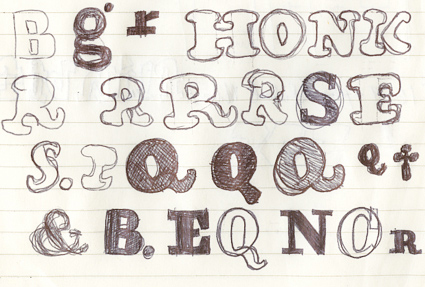 B g r HONK
R R R R S E
S. I Q Q Q Q †
& B. E Q N O R